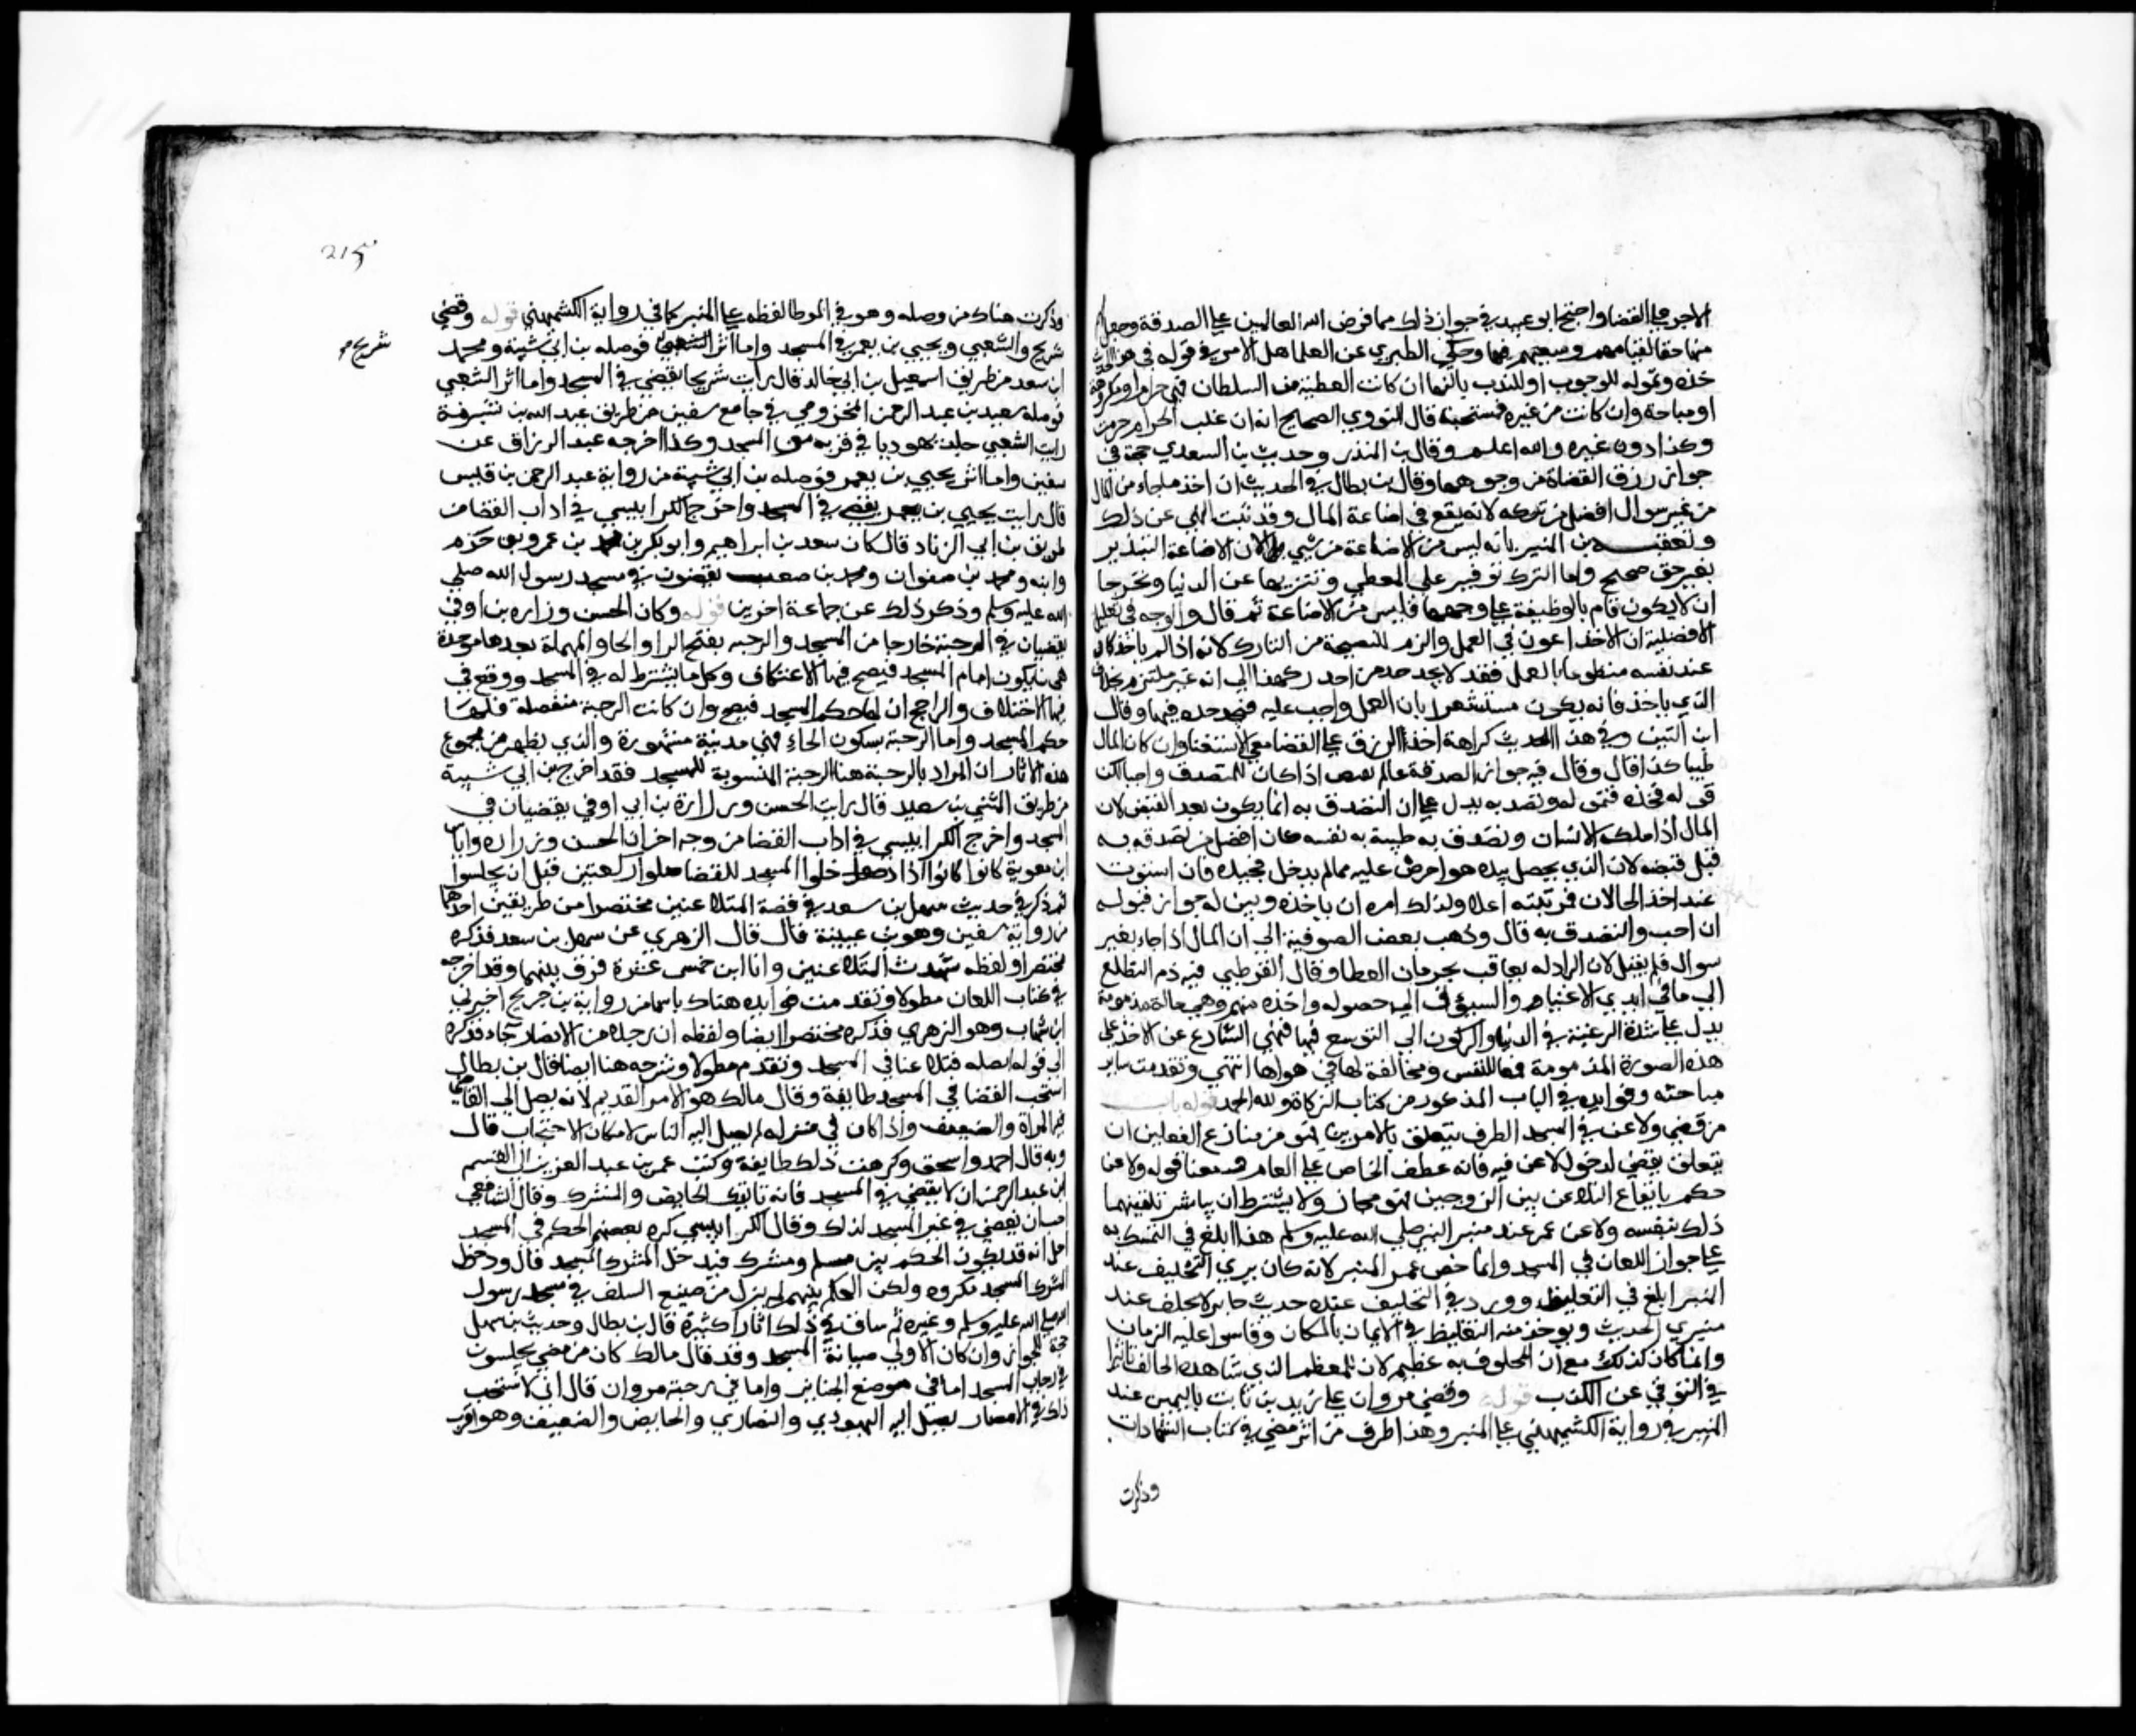 الاجر علي القضا واحتج ابو عبيد في جواز ذلك مما فرض الله للعاملين علي الصدقة وجعل لهم
منها حقا لقيامهم وسعيهم فيها وحكي الطبري عن العلما هل الامر في قوله في هذا الحديث
خذه وتموله للوجوب او للندب ثالثها ان كانت العطية من السلطان فهي حرام او مكروهة
او مباحة وان كانت من غيره فمستحبة قال النووي الصحيح انه ان غلب الحرام حرمت
وكذا دون غيره والله اعلم وقال بن المنذر وحديث بن السعدي حجة في
جواز رزق القضاة من وجوهها وقال بن بطال في الحديث ان اخذ ما جاء من المال
من غير سوال افضل من تركه لانه يقع في اضاعة المال وقد ثبت النهي عن ذلك
وتعقبه بن المنير بانه ليس من الاضاعة من شي لان الاضاعة التبذير
بغير حق صحيح واما الترك توفير علي المعطي وتنزيها عن الدنيا وتحرجا
ان لا يكون قام بالوظيفة علي وجهها فليس من الاضاعة ثم قال والوجه في تعليل
الافضلية ان الاخذ اعون في العمل والزم للنصيحة من التارك لانه اذا لم ياخذ كان
عند نفسه متطوعا بالعمل فقد لا يجد جد من اخذ ركونا الي انه غير ملتزم بخلاف
الذي ياخذ فانه يكون مستشعرا بان العمل واجب عليه فيجد جده فيها وقال
ابن التين وفي هذا الحديث كراهة اخذ الرزق علي القضا مع الاستغنا وان كان المال
طيبا كذا قال وقال فيه جواز الصدقة بما لم يقبض اذا كان للمتصدق واجبا لكن
قوله فخذه فتموله وتصدق به يدل علي ان التصدق به انما يكون بعد القبض لان
المال اذا ملكه الانسان وتصدق به طيبة به نفسه كان افضل من تصدقه به
قبل قبضه لان الذي يحصل بيده هو احرص عليه مما لم يدخل في يده فان استوت
عند احد الحالان فمرتبته اعلا ولذلك امره ان ياخذه وبين له جواز قبوله
ان احب والتصدق به قال وذهب بعض الصوفية الي ان المال اذا جاء بغير
سوال فلم يقبل لان الراد له يعاقب بحرمان العطا وقال القرطبي فيه ذم التطلع
الي ما في ايدي الاغنياء والتشوف الي حصوله واخذه منهم وهي حالة مذمومة
يدل علي شدة الرغبة في الدنيا والركون الي التوسع فيها فنهي الشارع عن الاخذ علي
هذه الصورة المذمومة قمعا للنفس ومخالفة لها في هواها انتهي وتقدمت ساير
مباحثه وفوايده في الباب المذكور من كتاب الزكاة ولله الحمد قوله باب
من قضي ولاعن في المسجد الظرف يتعلق بالامرين فهو من تنازع الفعلين ان
يتعلق بقضي لدخول لاعن فيه فانه عطف الخاص علي العام ومعنا قوله ولاعن
حكم بايقاع التلاعن بين الزوجين فهو مجاز ولا يشترط ان يباشر تلقينهما
ذلك بنفسه ولاعن عمر عند منبر النبي صلي الله عليه وسلم هذا ابلغ في التمسك به
علي جواز اللعان في المسجد وانما خص عمر المنبر لانه كان يري التحليف عند
المنبر ابلغ في التغليظ وورد في التحليف عنده حديث جابر لا يحلف عند
منبري الحديث ويوخذ منه التغليظ في الايمان بالمكان وقاسوا عليه الزمان
وانما كان كذلك مع ان المحلوف به عظيم لان للمعظم الذي شاهده الحالف تاثيرا
في التوقي عن الكذب قوله وقضي مروان علي زيد بن ثابت باليمين عند
المنبر في رواية الكشميهني علي المنبر وهذا طرف من اثر مضي في كتاب الشهادات
وذكرت
215
وذكرت هناك من وصله وهو في الموطا لفظه علي المنبر كما في رواية الكشميهني قوله وقضي
شريح والشعبي ويحيي بن يعمر في المسجد واما اثر الشعبي فوصله بن ابي شيبة ومحمد
شريح
ابن سعد من طريق اسمعيل بن ابي خالد قال رايت شريحا يقضي في المسجد واما اثر الشعبي
فوصله سعيد بن عبد الرحمن المخزومي في جامع سفين من طريق عبد الله بن شبرمة
رايت الشعبي جلد يهوديا في فرية في المسجد وكذا اخرجه عبد الرزاق عن
سفين واما اثر يحيي بن يعمر فوصله بن ابي شيبة من رواية عبد الرحمن بن قيس
قال رايت يحيي بن يعمر يقضي في المسجد واخرج الكرابيسي في اداب القضا من
طريق بن ابي الزناد قال كان سعد بن ابراهيم وابو بكر بن محمد بن عمرو بن حزم
وابنه ومحمد بن صفوان ومحمد بن مصعب يقضون في مسجد رسول الله صلي
الله عليه وسلم وذكر ذلك عن جماعة اخرين قوله وكان الحسن وزراره بن اوفي
يقضيان في الرحبة خارجا من المسجد والرحبه بفتح الرا والحا المهملة بعدها موحدة
هي بنا يكون امام المسجد فيصح فيها الاعتكاف وكل ما يشترط له في المسجد ووقع في
فيها الاختلاف والراجح ان لها حكم المسجد فيصح وان كانت الرحبة منفصلة فلها
حكم المسجد واما الرحبة بسكون الحاء فهي مدينة مشهورة والذي يظهر من مجموع
هذه الاثار ان المراد بالرحبة هنا الرحبة المنسوبة للمسجد فقد اخرج بن ابي شيبة
من طريق المثني بن سعيد قال رايت الحسن وزرارة بن ابي اوفي يقضيان في
المسجد واخرج الكرابيسي في اداب القضا من وجه اخر ان الحسن وزراره واياس
ابن معوية كانوا كانوا اذا دخلوا المسجد للقضا صلوا ركعتين قبل ان يجلسوا
ثم ذكر في حديث سهل بن سعد في قصة المتلاعنين مختصرا من طريقين احدهما
من رواية سفين وهو بن عيينة قال قال الزهري عن سهل بن سعد فذكره
مختصرا ولفظه شهدت المتلاعنين وانا ابن خمس عشرة فرق بينهما وقد اخرجه
في كتاب اللعان مطولا وتقدمت فوايده هناك ثانيهما من رواية بن جريج اخبرني
ابن شهاب وهو الزهري فذكره مختصرا ايضا ولفظه ان رجلا من الانصار جاء فذكره
الي قوله فتلاعنا في المسجد وتقدم مطولا وشرحه هنا ايضا قال بن بطال
استحب القضا في المسجد طايفة وقال مالك هو الامر القديم لانه يصل الي القاضي
فيه المراة والضعيف واذا كان في منزله لم يصل اليه الناس لامكان الاحتجاب قال
وبه قال احمد واسحق وكرهت ذلك طايفة وكتب عمر بن عبد العزيز الي القسم
ابن عبد الرحمن ان لا يقضي في المسجد فانه ياتيك الحايض والمشرك وقال الشافعي
احب ان يقضي في غير المسجد لذلك وقال الكرابيسي كره بعضهم الحكم في المسجد
اجل انه قد يكون الحكم بين مسلم ومشرك فيدخل المشرك المسجد قال ودخول
المشرك المسجد مكروه ولكن الحكم بينهم لم يزل من صنيع السلف في مسجد رسول
الله صلي الله عليه وسلم وغيره ثم ساق في ذلك اثارا كثيرة قال بن بطال وحديث بن سهل
حجة للجواز وان كان الاولي صيانة المسجد وقد قال مالك كان من مضي يجلسون
في رحاب المسجد اما في موضع الجنايز واما في رحبة مروان قال اني لاستحب
ذلك في الامصار ليصل اليه اليهودي والنصاري والحايض والضعيف وهو اقرب